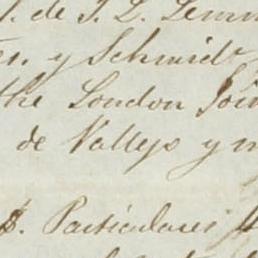 de J. L. Lemm
y Schmidt
the London Joi
de Vallejo y m
Particulares